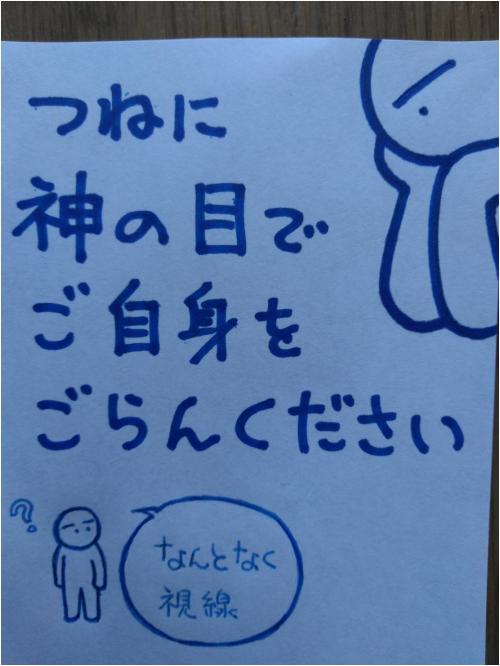 つねに
神の目で
ご自身を
ごらんください
?
なんとなく
視線